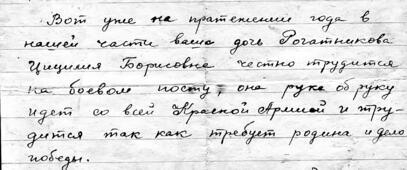 Вот уже на пратежении года в
нашей части ваша дочь Рогатникова
Цицилия Борисовна честно трудится
на боевом посту, она рука об руку
идет со всей Красной Армией и тру-
дится так как требует родина и дело
победы.